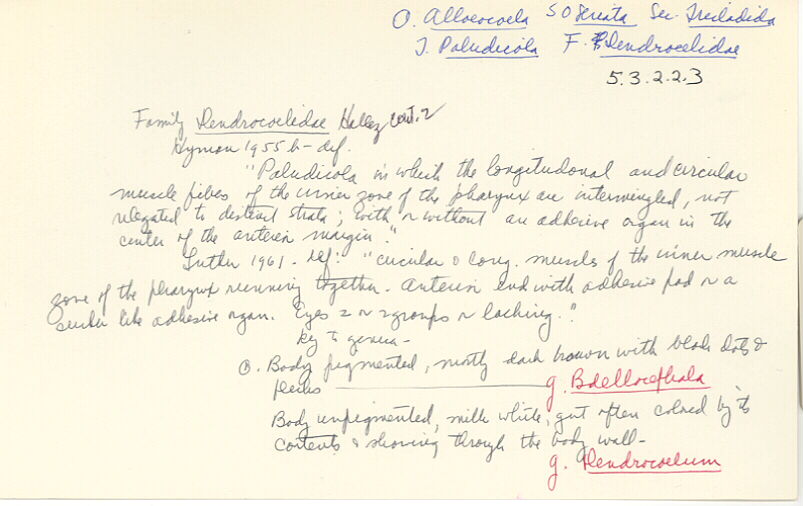 O. Alloeocoela S O Seriata Sec. Tricladida
T. Paludicola F. Dendrocoelidae
5.3.2.2.3
Family Dendrocoelidae Hallez cont. 2
Hyman 1955 b - def.
"Paludicola in which the longitudonal and circular
muscle fibers of the inner zone of the pharynx are intermingled, not
relegated to distinct strata; with or without an adhesive organ in the
center of the anterior margin."
Luther 1961. def: "circular & long. muscles of the inner muscle
zone of the pharynx running together. Anterior end with adhesive pad or a
sucker like adhesive organ. Eyes 2 or 2 groups or lacking."
Key to genera -
Body pigmented, mostly dark brown with black dots &
flecks g. Bdellocephala
Body unpigmented, milk white; gut often colored by its
contents & showing through the body wall -
g. Dendrocoelum